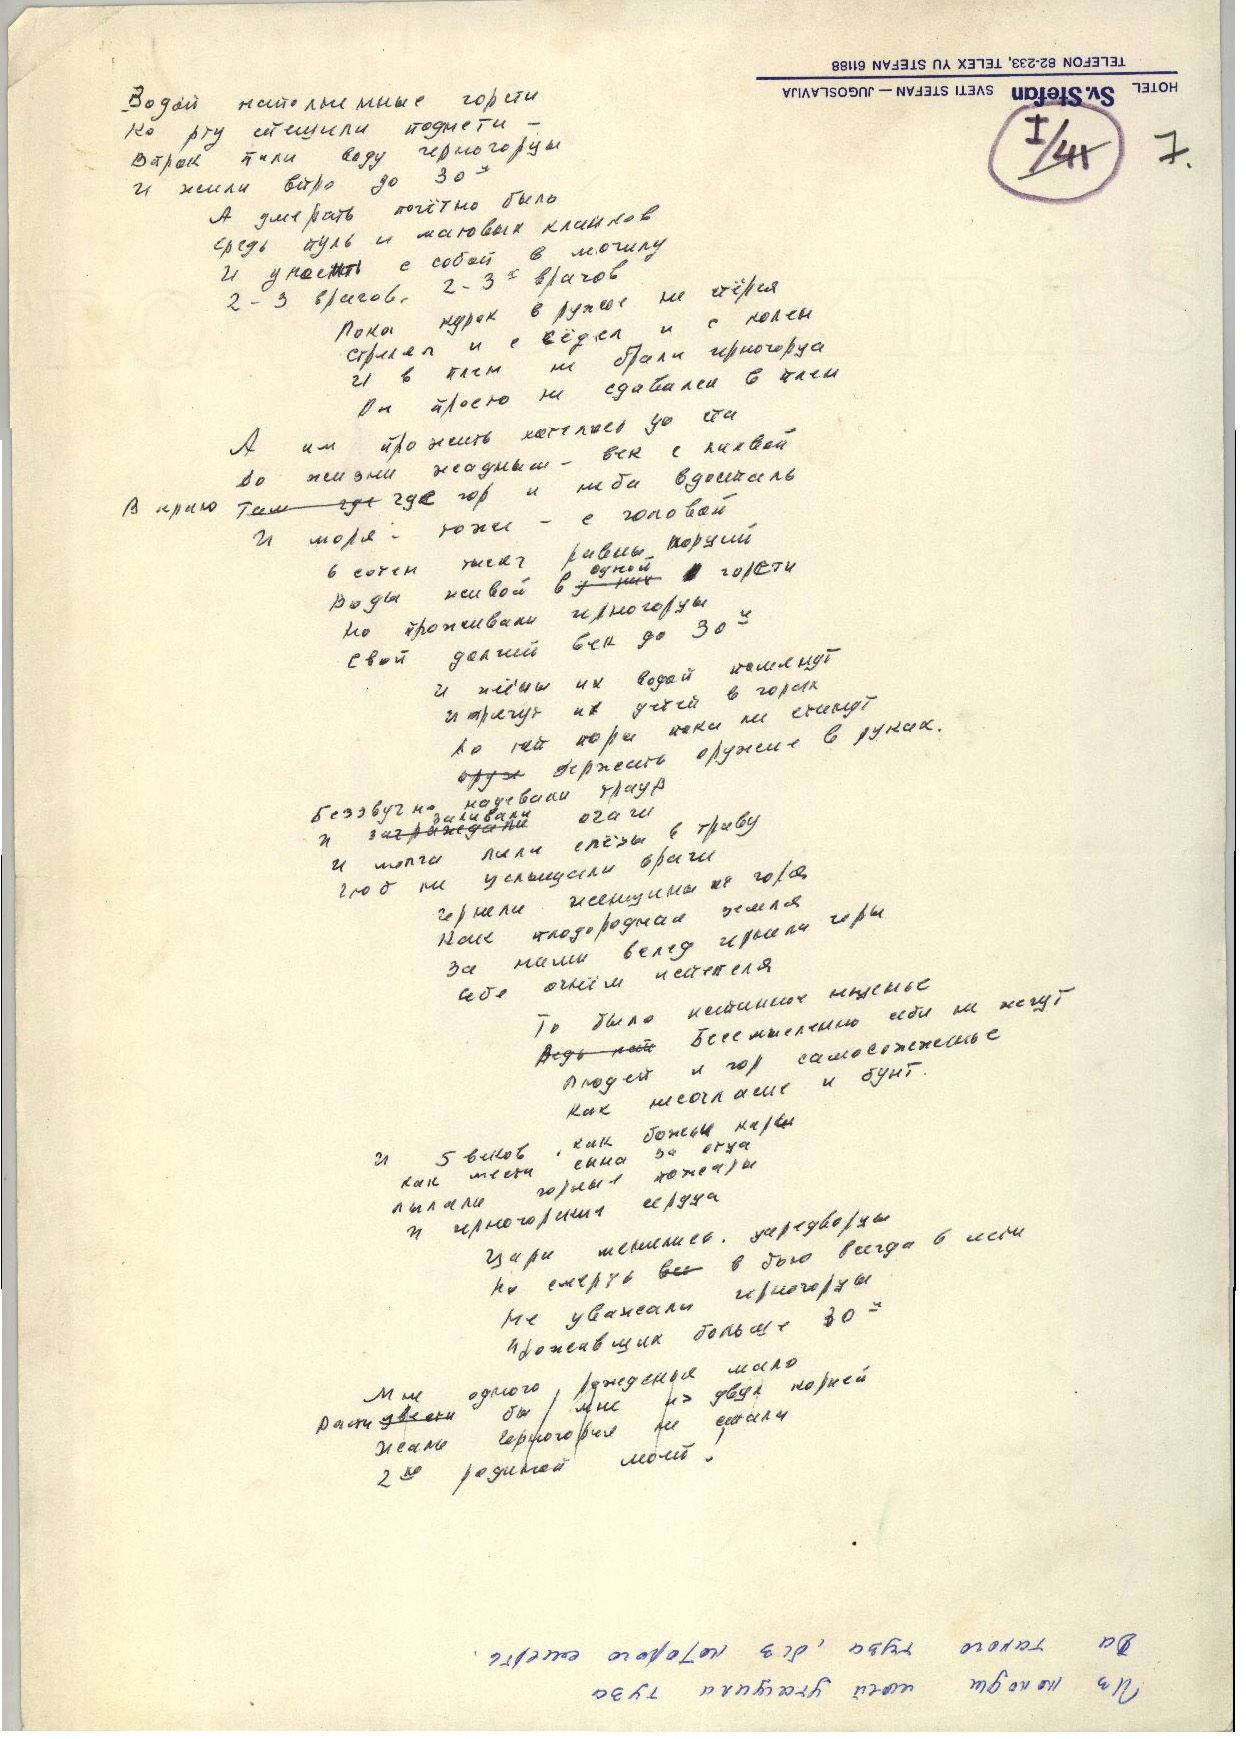 HOTEL Sv. Stefan SVETI STEFAN — JUGOSLAVIJA
TELEFON 82-233, TELEX YU STEFAN 61188
I/41
7.
Водой наполненные горсти
Ко рту спешили поднести —
Впрок пили воду черногорцы
И жили впро до 30и
А умереть почётно было
средь пуль и матовых клинков
И уносить с собой в могилу
2-3 врагов, 2-3х врагов
Пока курок в ружье не стёрся
стрелял и с сёдел и с колен
И в плен не брали черногорца
Он просто не сдавался в плен
А им прожить хотелось до ста
До жизни жадным — век с лихвой
В краю Там где где гор и неба вдосталь
И моря — тоже — с головой
6 сотен тысяч равных порций
Воды живой в у них одной горсти
Но проживали черногорцы
Свой долгий век до 30и
И жёны их водой помянут
И прячут их детей в горах
До той поры пока не станут
оруж держать оружие в руках.
Беззвучно надевали траур
И заграждали заливали очаги
И молча лили слёзы в траву
Чтоб не услышали враги
Чернели женщины от горя
Как плодородная земля
За ними вслед чернели горы
себя огнём испепеля
То было истинное мщенье
Ведь они Бессмысленно себя не жгут
Людей и гор самосожженье
Как несогласие и бунт.
И 5 веков, как божьи кары
как мести сына за отца
пылали горные пожары
И черногорские сердца
Цари менялись, царедворцы
Но смерть все в бою всегда в чести
Не уважали черногорцы
Проживших больше 30и
Мне одного рожденья мало
Расти цвести бы мне из двух корней
Жаль Черногория не стала
2ою родиной моей!
Из колоды моей утащили туза
Да такого туза, без которого смерть.